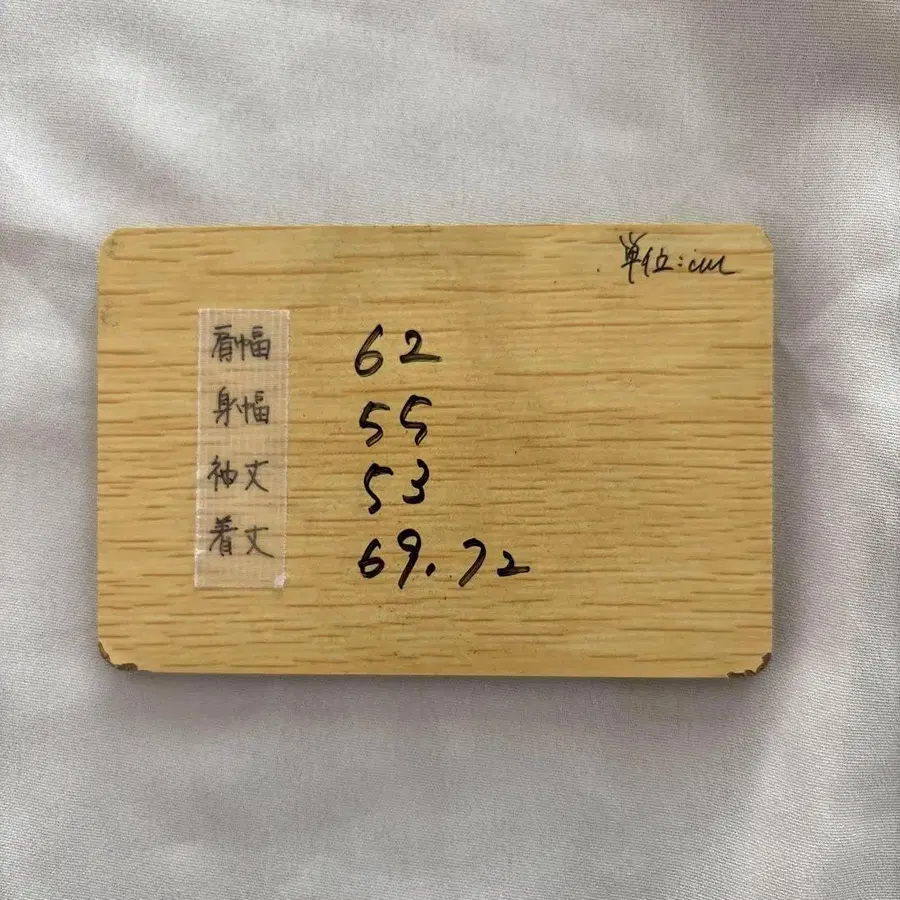 単位:cm
肩幅 62
身幅 55
袖丈 53
着丈 69.72